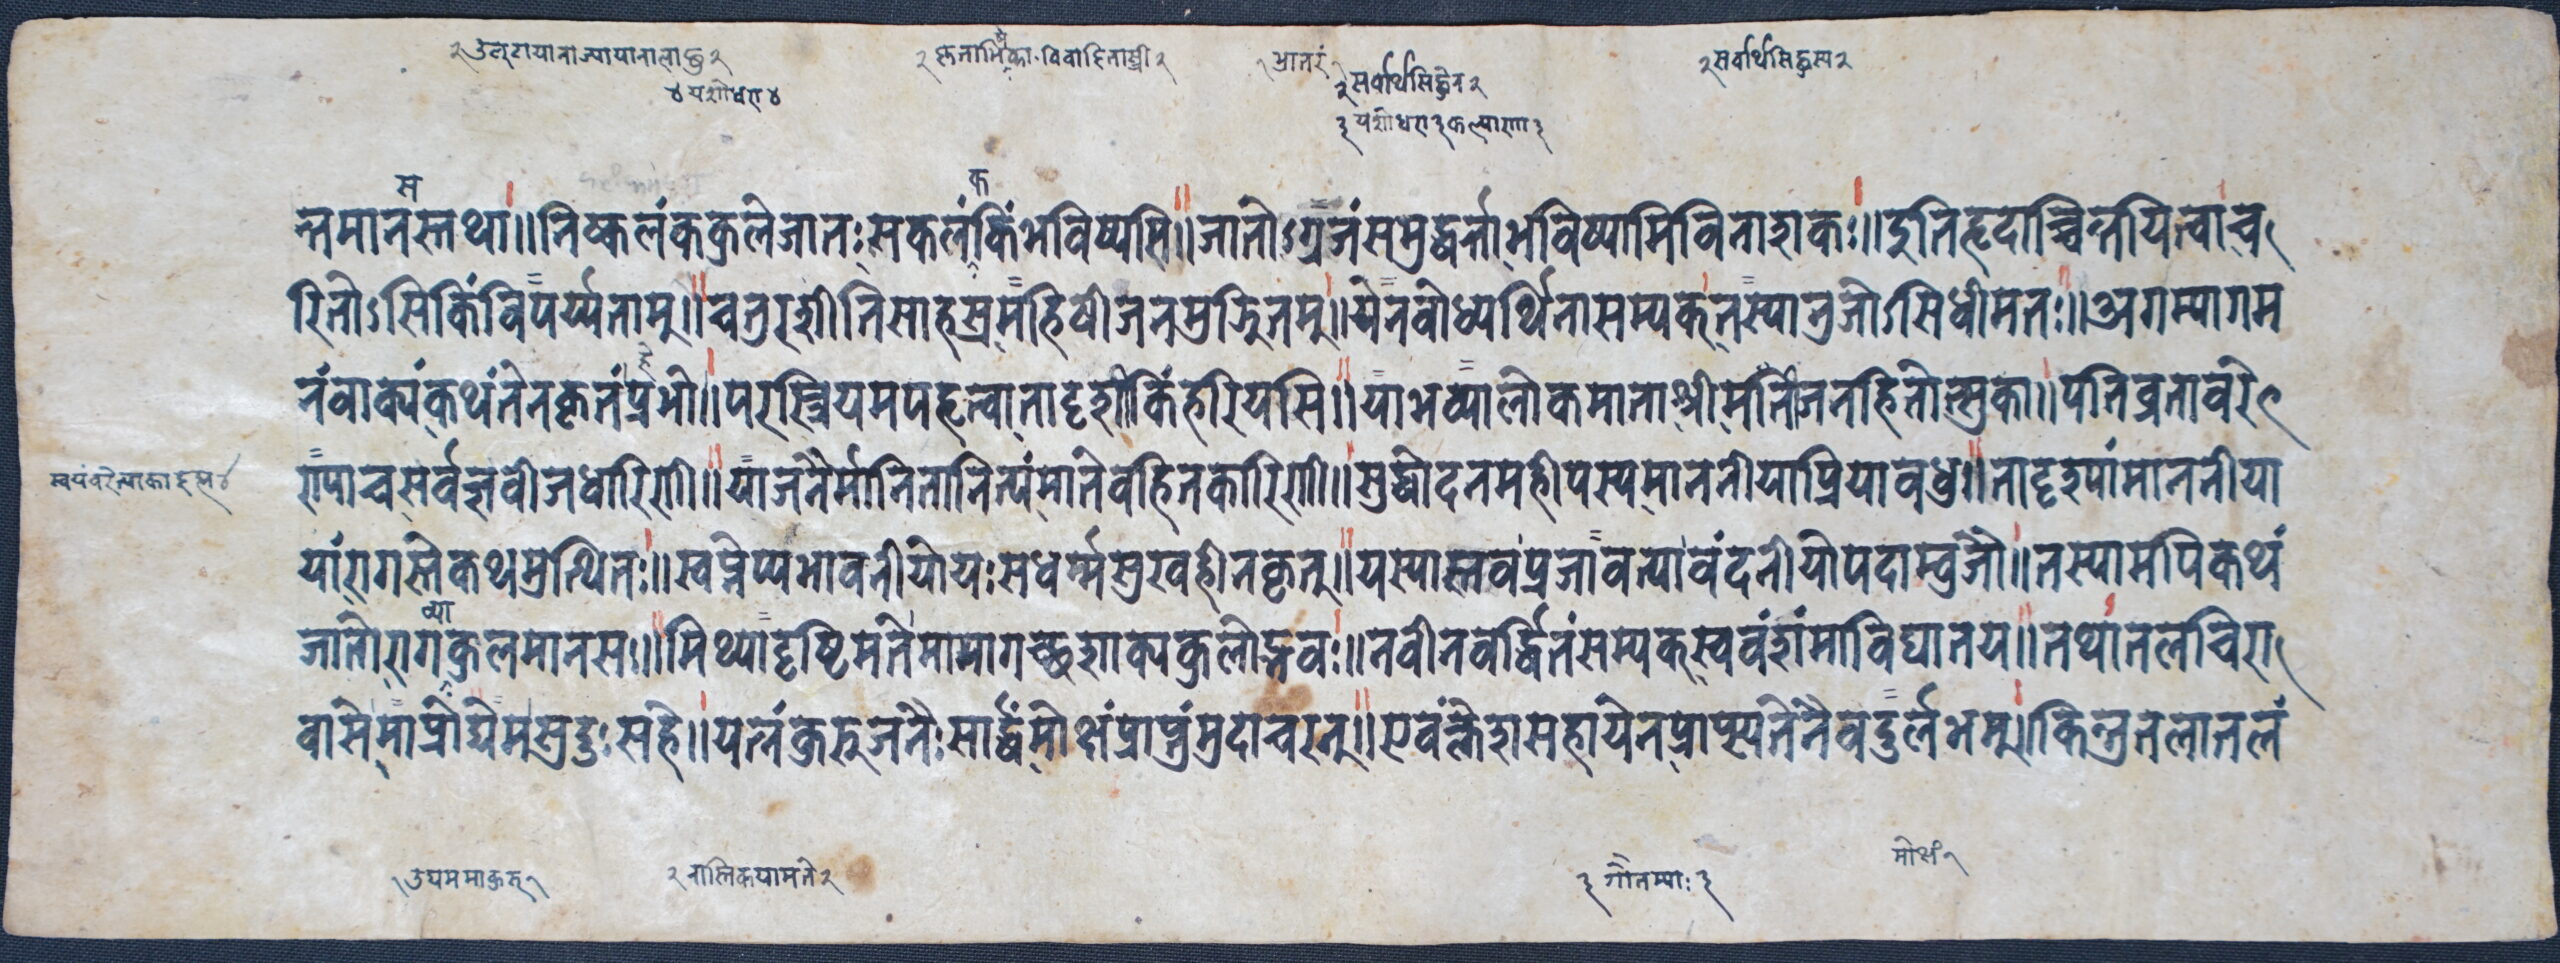 २ सर्वार्थसिद्धस्य २
४ यशोधरा ४
१ भ्रातरं १
२ सर्वार्थसिद्धेन २
३ यशोधरा ३ कल्याण ३
स
क
न्तमानस्तथा॥ निष्कलंककुलेजातःसकलंकिंभविष्यसि॥ जातोऽग्रजंसमुद्धर्त्ताभविष्यामिविनाशकः॥ इतिहृदाच्चिन्तयित्वाच
रितोऽसिकिंविपर्य्यताम्॥ चतुरशीतिसाहस्रमहिषीजनमुज्झितम्॥ येनबोध्यर्थिनासम्यक्तस्यानुजोऽसिधीमतः॥ अगम्यागम
नंवाक्यंकथंतेनकृतंप्रभो॥ परस्त्रियमपहृत्वातादृशींकिंहरियसि॥ याभव्यालोकमाताश्रीमतीजनहितोत्सुका॥ पतिव्रतावरे
रापाचसर्वज्ञबीजधारिणी॥ याजनैर्मानितानित्यंमातेवहितकारिणी॥ शुद्धोदनमहीपस्यमाननीयाप्रियावधु॥ तादृश्यांमाननीया
यांरागस्तेकथमुत्थितः॥ स्वप्नेप्यभावनीयोयःसधर्म्मसुखहीनकृत्॥ यस्यास्तवप्रजावत्यावंदनीयोपदाम्बुजौ॥ तस्यामपिकथं
व्या
जातोरागकुलमानस॥ मिथ्यादृष्टिमतेमामागच्छशाक्यकुलोद्भव॥ नवीनवर्द्धितंसम्यक्स्ववंशंमाविघातय॥ तथानलचिरा
वासेमाप्रोद्यमसुदुःसहे॥ यत्नंकुरुजनैःसार्द्धंमोक्षंप्राप्तुंमुदाचरन्॥ एवंक्लेशसहायेनप्राप्स्यतेनैवदुर्लभम्॥ किन्तुतलातलं
१ उद्यममाकुरु १
३ गौतम्याः ३
मोक्षं १